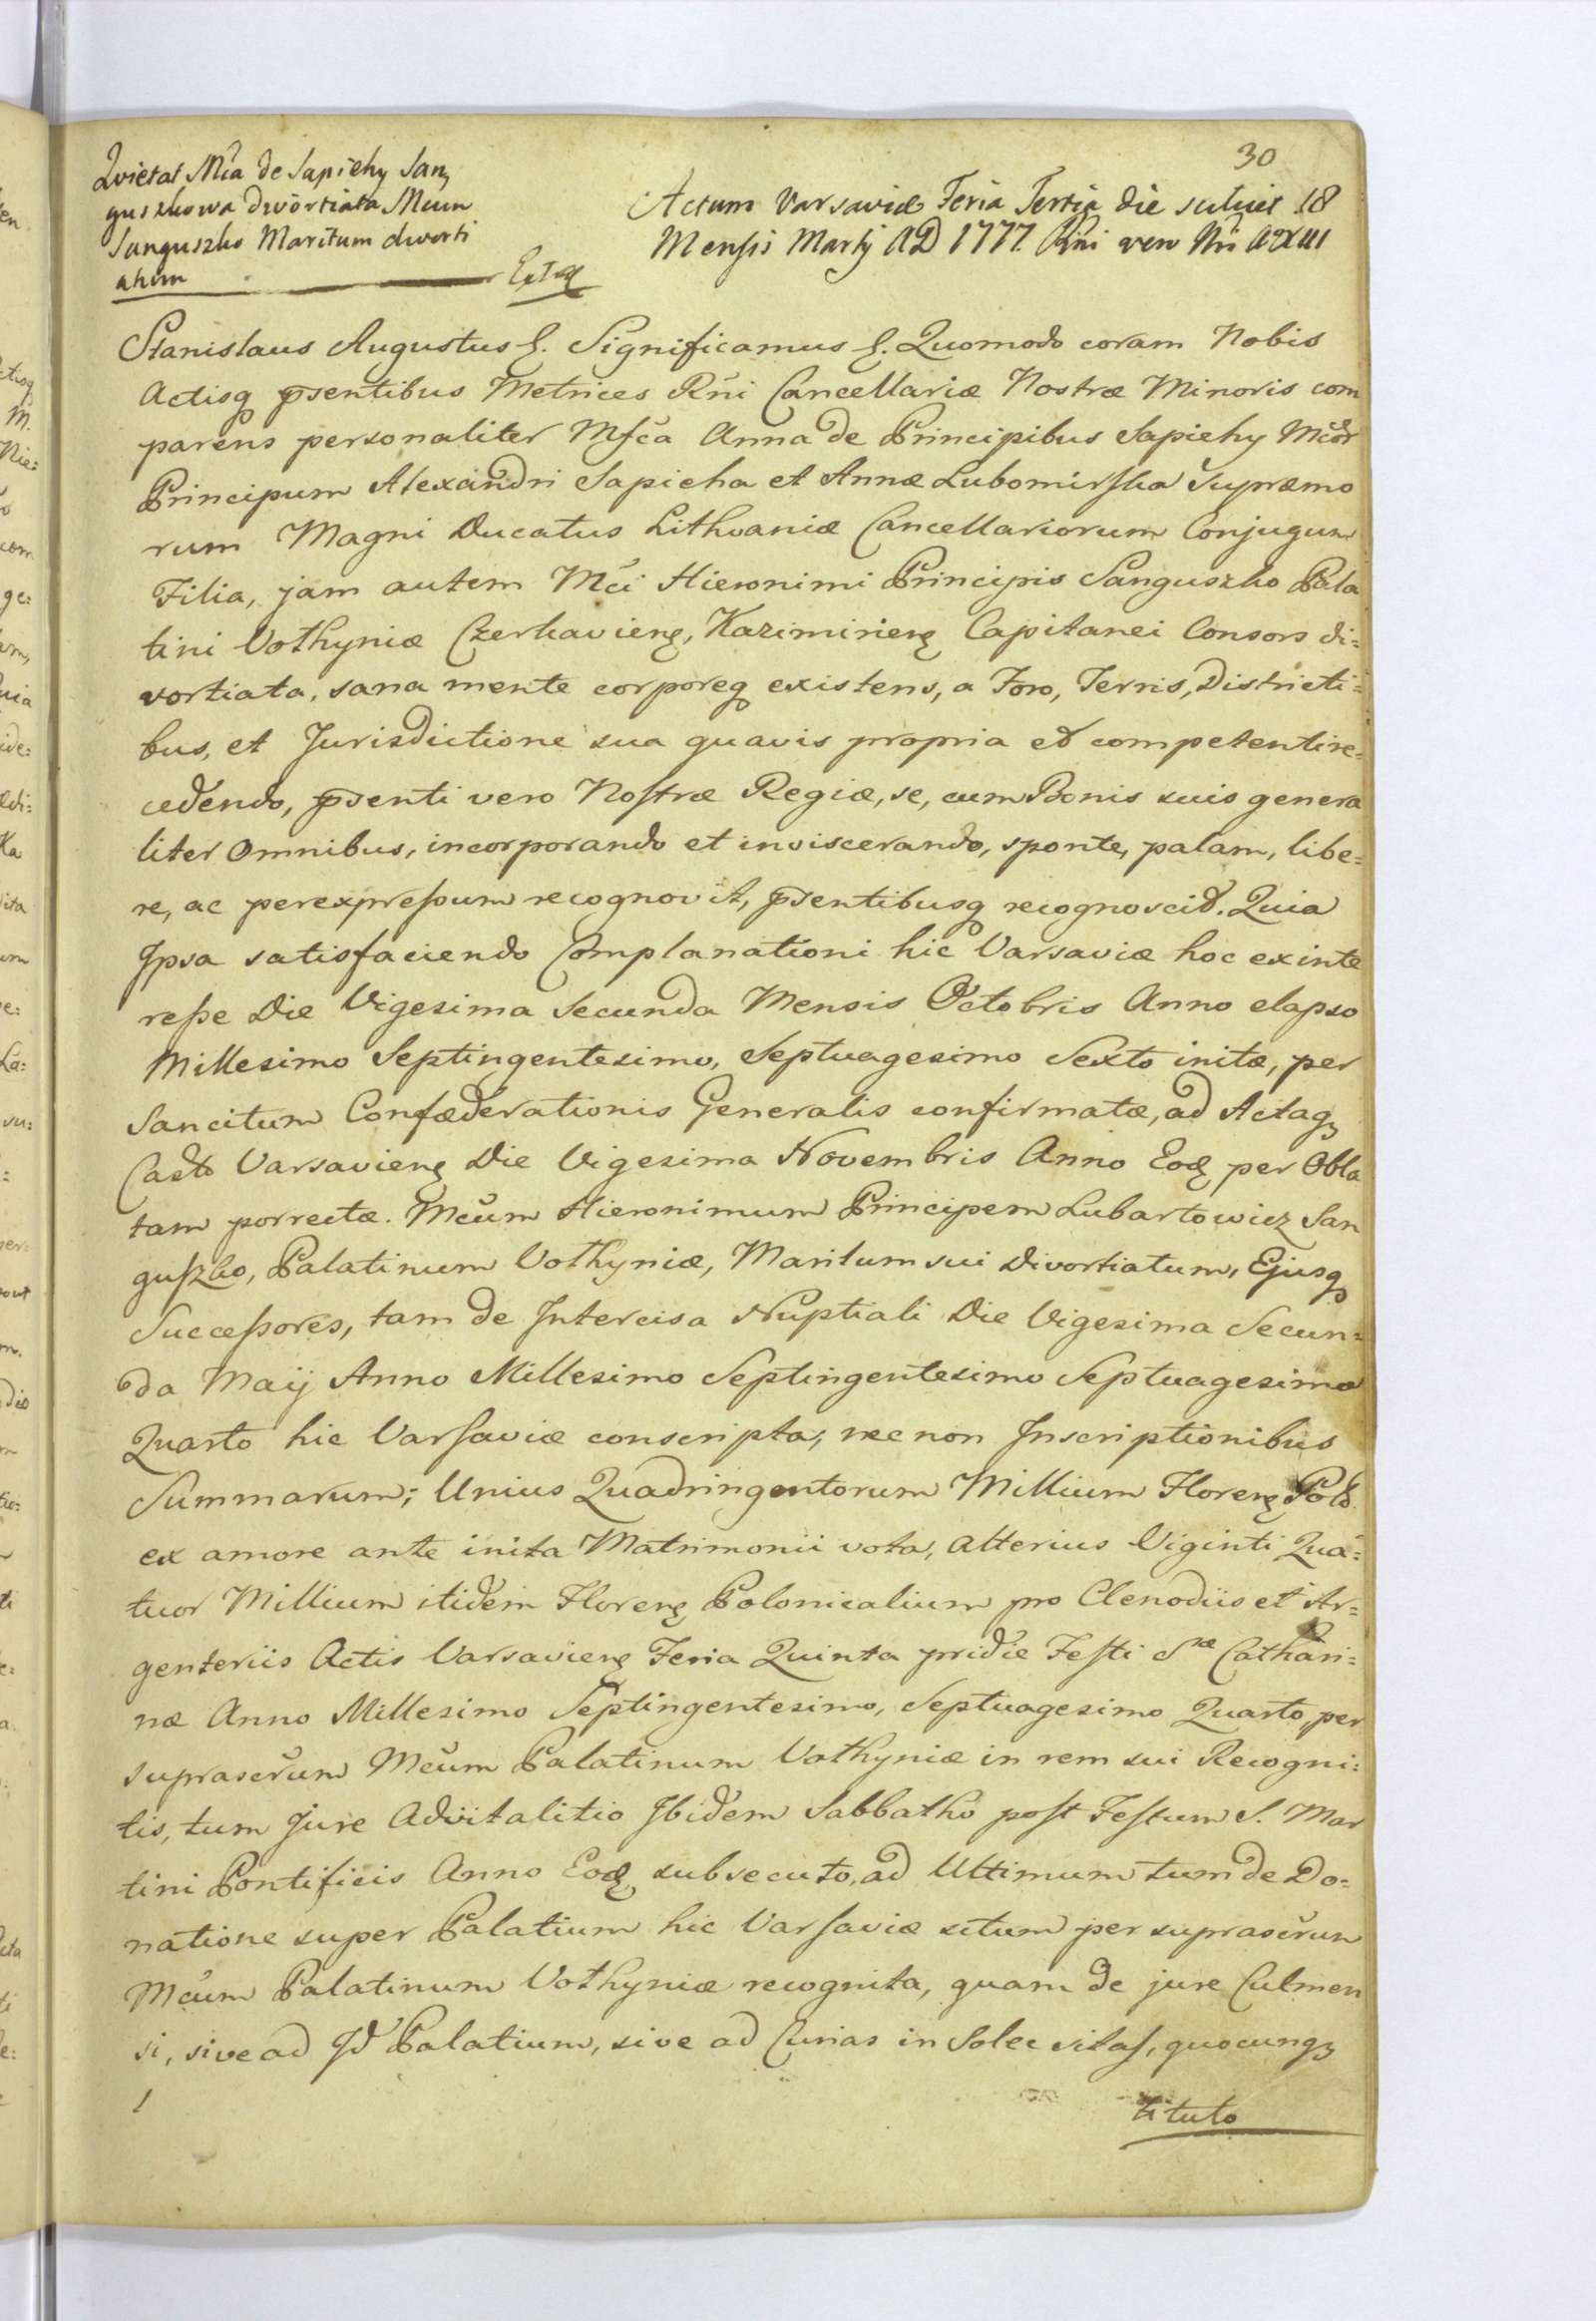 30
Quietat Mca de Sapiehy San
guszkowa divortiata Mcum
Sanguszko Maritum divorti
atum
Actum Varsaviæ Feria Tertia die scilicet 18
Mensis Martij AD 1777. Rni vero Nri Aº XIII
Stanislaus Augustus &. Significamus &. Quomodo coram Nobis
Actisq pñsentibus Metrices Rñi Cancellariæ Nostræ Minoris com
parens personaliter Mfca Anna de Principibus Sapiehy Mcor
Principum Alexandri Sapieha et Annæ Lubomirska Supræmo
rum Magni Ducatus Lithvaniæ Cancellariorum Conjugum
Filia, jam autem Mci Hieronimi Principis Sanguszko Pala
tini Volhyniæ Czerkavienɛ, Kazimirienɛ Capitanei Consors di=
vortiata, sana mente corporeq existens, a Foro, Terris, Districti=
bus, et Jurisdictione sua quavis propria et competenti re=
cedendo, pñsenti vero Nostræ Regiæ, se, cum Bonis suis genera
liter Omnibus, incorporando et inviscerando, sponte, palam, libe=
re, ac perexpressum recognovit, pñsentibusq recognoscit. Quia
Ipsa satisfaciendo Complanationi hic Varsaviæ hoc ex inte
resse Die Vigesima Secunda Mensis Octobris Anno elapso
Millesimo Septingentesimo, Septuagesimo Sexto initæ, per
Sancitum Confæderationis Generalis confirmatæ, ad Actaq
Castr Varsavienɛ Die Vigesima Novembris Anno Eod per Obla
tam porrectæ. Mcum Hieronimum Principem Lubartowicz San
guszko, Palatinum Volhyniæ, Maritum sui Divortiatum, Ejusq
Successores, tam de Intercisa Nuptiali Die Vigesima Secun=
da Maij Anno Millesimo Septingentesimo Septuagesimo
Quarto hic Varsaviæ conscripta, nec non Inscriptionibus
Summarum; Unius Quadringentorum Millium Florenɛ Pold
ex amore ante inita Matrimonii vota, alterius Viginti Qua=
tuor Millium itidem Florenɛ Polonicalium pro Clenodiis et Ar=
genteriis Actis Varsavienɛ Feria Quinta pridie Festi Sæ Cathari=
næ Anno Millesimo Septingentesimo, Septuagesimo Quarto, per
suprascrum Mcum Palatinum Volhyniæ in rem sui Recogni=
tis, tum Jure Advitalitio Ibidem Sabbatho post Festum S. Mar
tini Pontificis Anno Eod subsecuto, ad Ultimum tum de Do=
natione super Palatium hic Varsaviæ situm per suprascrum
Mcum Palatinum Volhyniæ recognita, quam de jure Culmen
si, sive ad Id Palatium, sive ad Curias in Solec sitas, quocunq
titulo